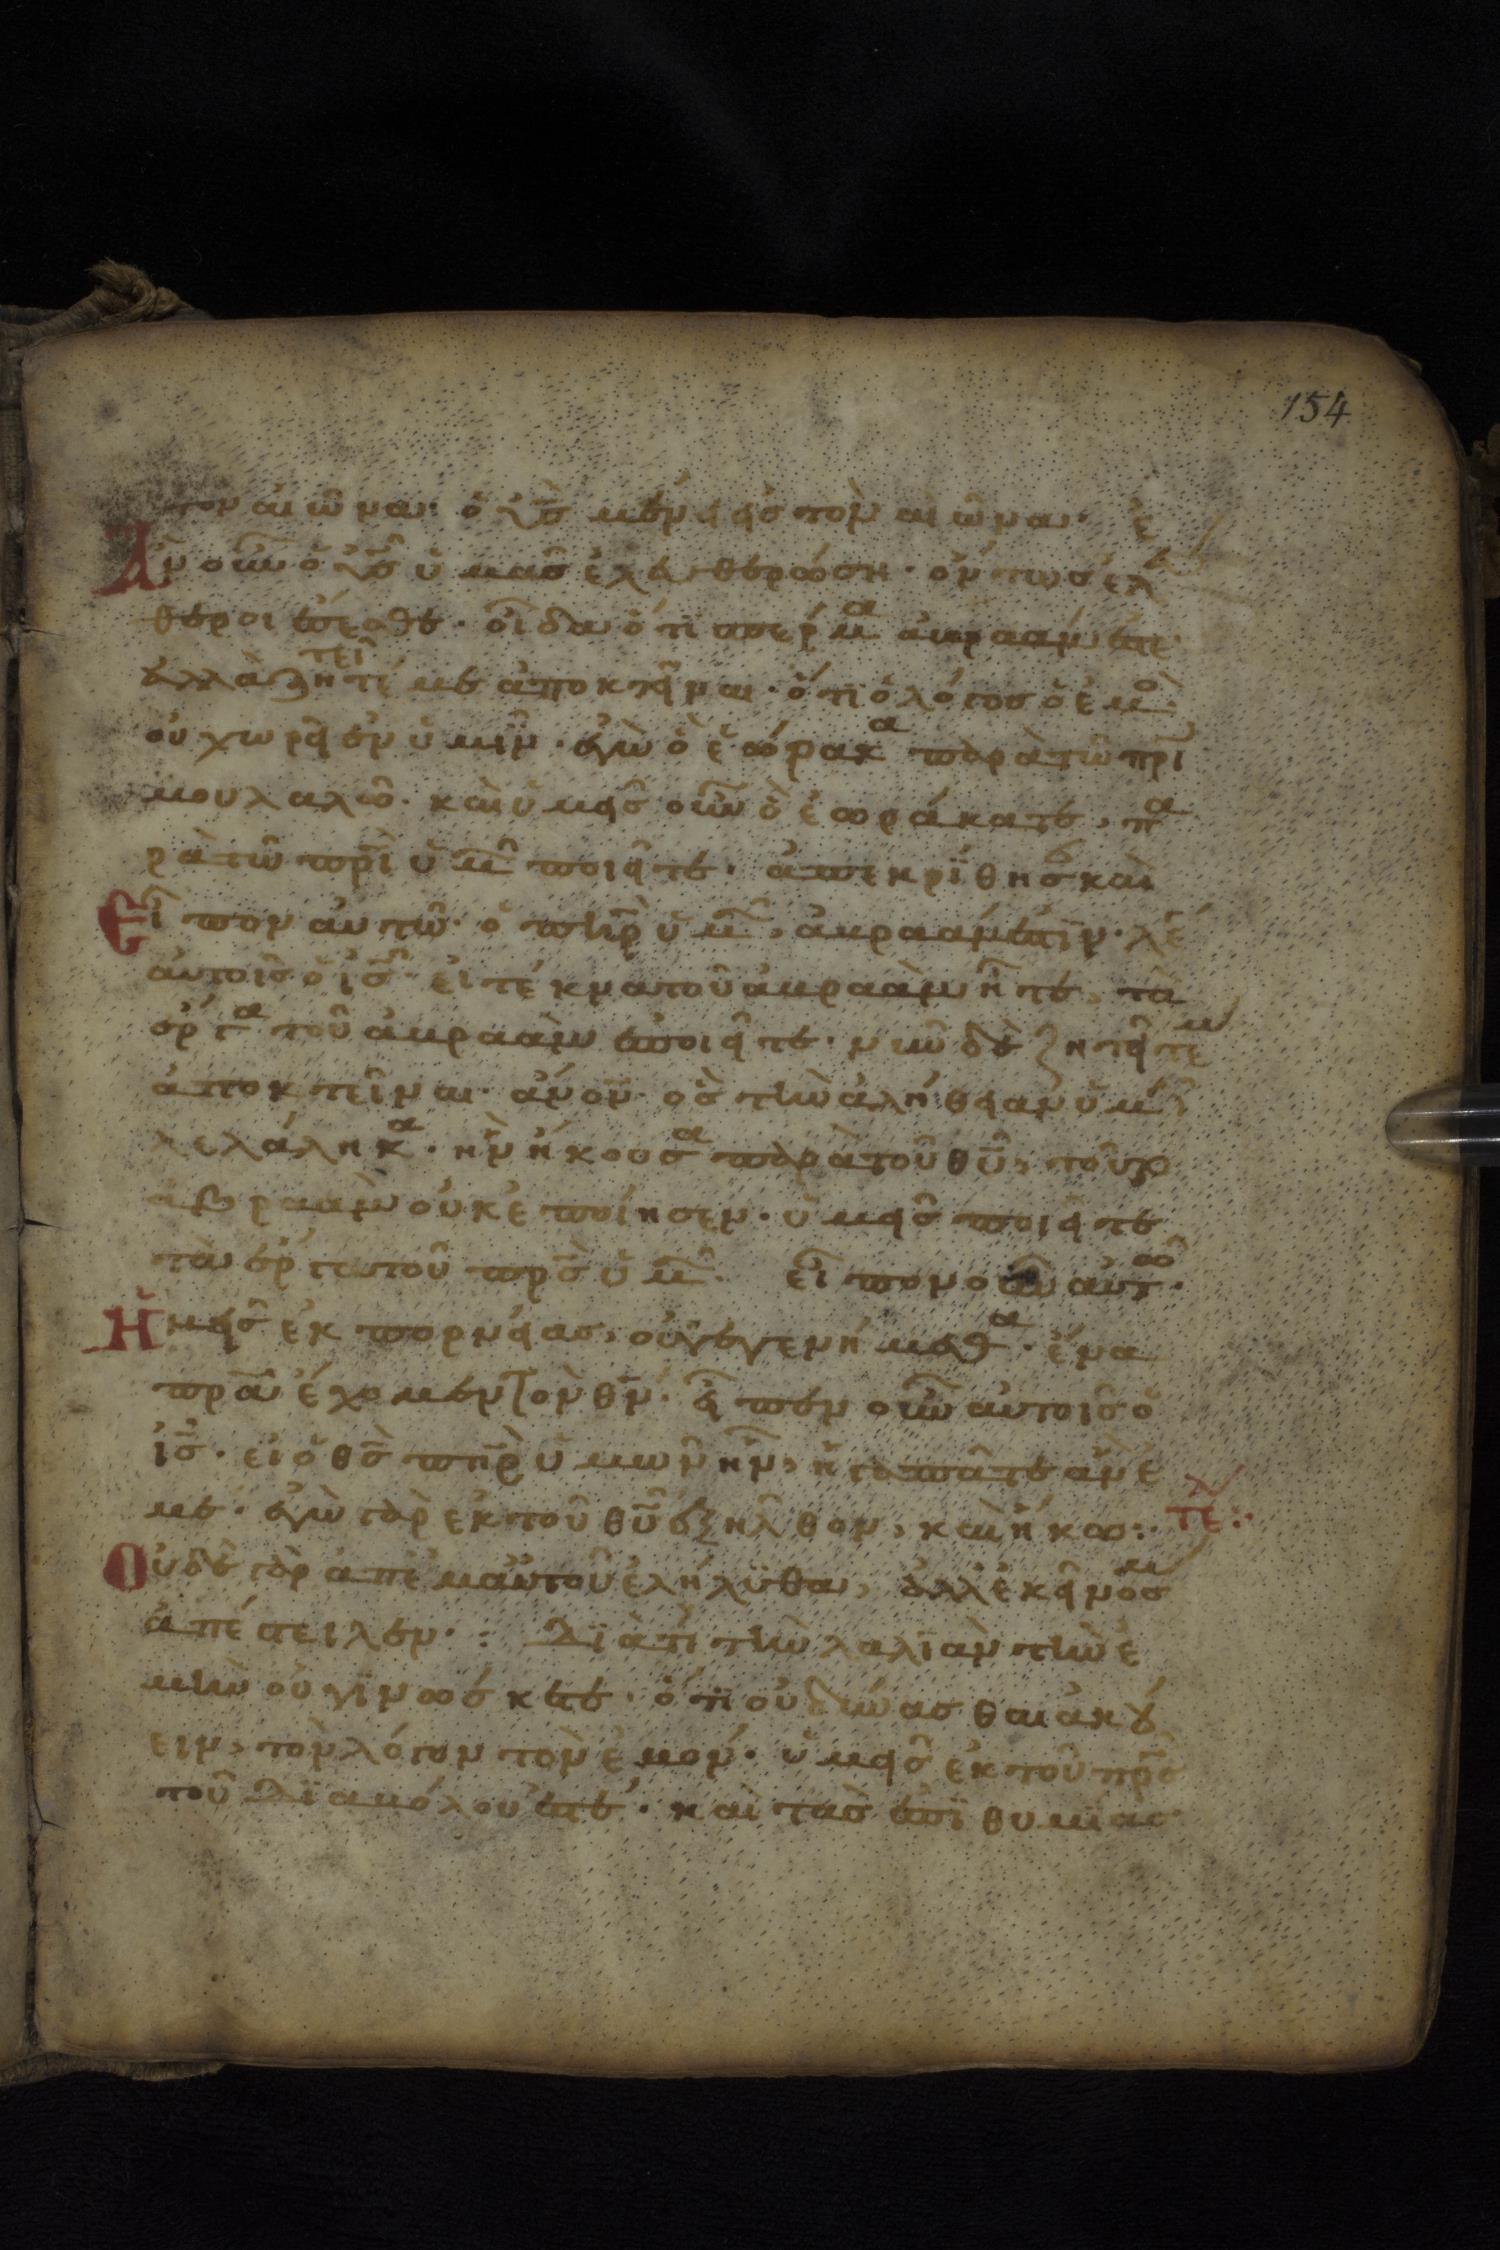 154
τον αἰῶνα· ὁ υἱ̅ς̅ μένει εἰς τὸν αἰῶνα· ἐ
Ὰν οὖν ὁ υἱ̅ς̅ ὑμᾶς ἐλευθερώσῃ· ὄντως ἐλεύ
θεροι ἔσεσθε· οἶδα ὅτι σπέρμα ἀβραάμ ἐστε·
ἀλλὰ ζητεῖτέ με ἀποκτεῖναι· ὅτι ὁ λόγος ὁ ἐμὸ
οὐ χωρεῖ ἐν ὑμῖν· ἐγὼ ὃ ἑώρακα παρὰ τῶ πρι̅
μου λαλῶ· καὶ ὑμεῖς οὖν ὃ ἑωράκατε, πα
ρὰ τῶ πρι̅ ὑμῶ ποιεῖτε· ἀπεκρίθησ καὶ
Εἶπον αὐτῶ· ὁ πη̅ρ̅ ὑμῶ, ἀβραάμ ἐστϊν· λέγ
αὐτοῖς ὁ ι̅ς̅· εἰ τέκνα τοῦ ἀβραὰμ ἦτε, τὰ
ἔργα τοῦ ἀβραὰμ ἐποιεῖτε· νῦν δὲ ζητεῖτέ μ
ἀποκτεῖναι· ἀν̅ο̅ν̅ ὃς τὴν ἀλήθειαν ὑμῖ
λελάληκα· ἣν ἤκουσα παρὰ τοῦ θυ̅, τοῦτο
ἀβραὰμ οὐκ ἐποίησεν· ὑμεῖς ποιεῖτε
τὰ ἔργα τοῦ πρ̅ς̅ ὑμῶ· εἶπον οὖν αὐτῶ·
Ἡμεῖς ἐκ πορνείας, οὐ γεγεννήμεθα· ἕνα
πρ̅α̅ ἔχομεν τὸν θν̅· εἶπεν οὖν αὐτοῖς ὁ
ι̅ς̅· εἰ ὁ θς̅ πη̅ρ̅ ὑμῶν ἦν, ἠγαπᾶτε ἂν ἐ
με· ἐγὼ γὰρ ἐκ τοῦ θυ̅ ἐξῆλθον, καὶ ἥκω:· τέ̅λ̅:·
Οὐδὲ γὰρ ἀπ' ἐμαυτοῦ ἐλήλϋθα, ἀλλ' ἐκεῖνός μ
ἀπέστειλεν·: Διατί τὴν λαλιὰν τὴν ἐ
μὴν οὐ γϊνώσκετε· ὅτι οὐ δύνασθαι ἀκού
ειν, τὸν λόγον τὸν ἐμόν· ὑμεῖς ἐκ τοῦ πρ̅ς̅
τοῦ διαβόλου ἐστέ· καὶ τὰς ἐπϊθυμίας